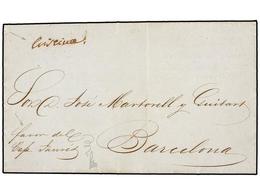 Cristina.
Sor. Dn. José Martorell y Guitart
favor del
Cap.
Barcelona